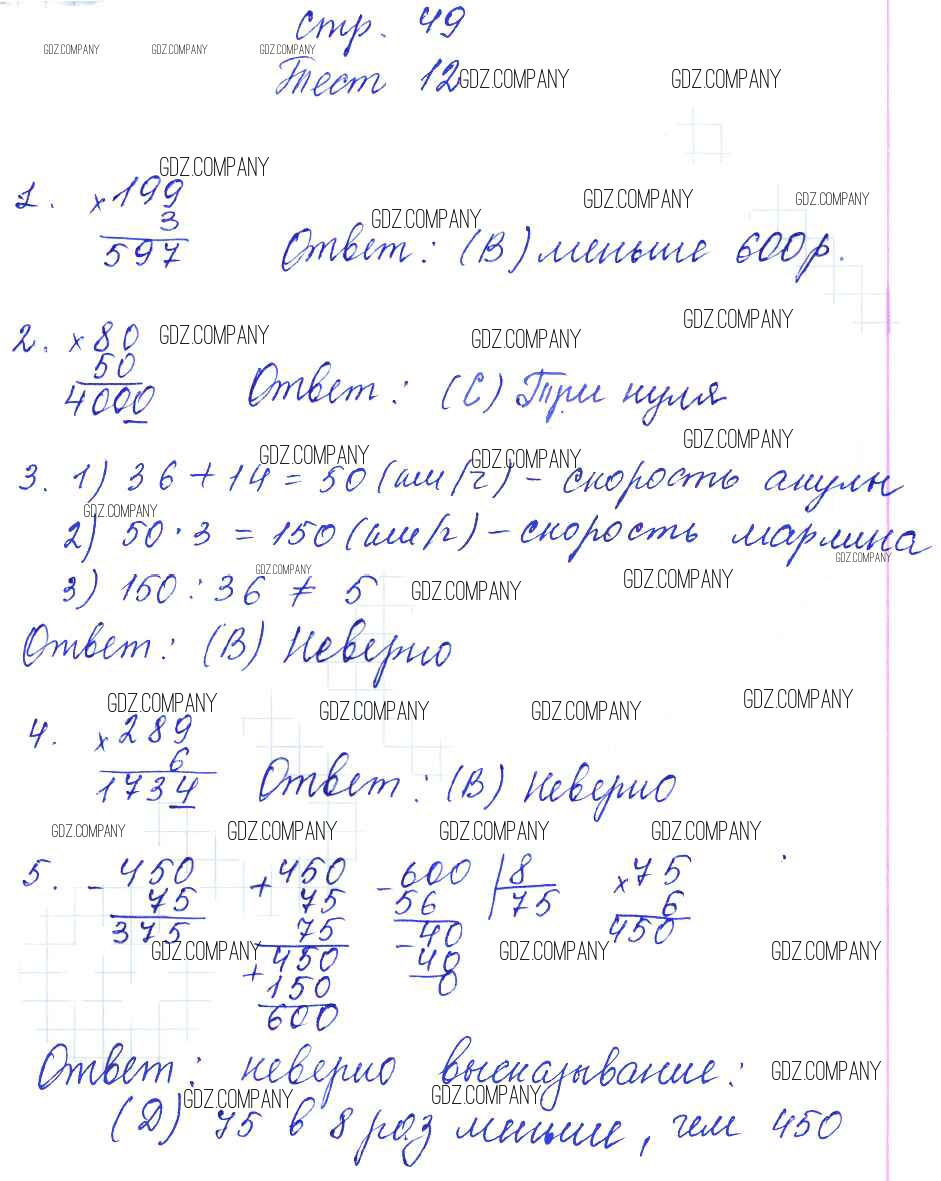 стр. 49
GDZ.COMPANY GDZ.COMPANY GDZ.COMPANY
Тест 12 GDZ.COMPANY GDZ.COMPANY
GDZ.COMPANY
1. ×199
GDZ.COMPANY GDZ.COMPANY
3 GDZ.COMPANY
597 Ответ: (В) меньше 600 р.
GDZ.COMPANY
2. ×80 GDZ.COMPANY GDZ.COMPANY
50
4000 Ответ: (С) Три нуля
GDZ.COMPANY
GDZ.COMPANY GDZ.COMPANY
3. 1) 36 + 14 = 50 (км/ч) - скорость акулы
GDZ.COMPANY
2) 50 · 3 = 150 (км/ч) - скорость марлина
GDZ.COMPANY
GDZ.COMPANY
3) 150 : 36 ≠ 5 GDZ.COMPANY GDZ.COMPANY
Ответ: (В) Неверно
GDZ.COMPANY GDZ.COMPANY GDZ.COMPANY GDZ.COMPANY
4. ×289
6
1734 Ответ: (В) неверно
GDZ.COMPANY GDZ.COMPANY GDZ.COMPANY GDZ.COMPANY
5. -450 +450 -600 |8 ×75
75 75 56 75 6
375 75 -40 450
GDZ.COMPANY GDZ.COMPANY GDZ.COMPANY
+450 40
150 0
600
Ответ: неверно высказывание:
GDZ.COMPANY
GDZ.COMPANY GDZ.COMPANY
(Д) 75 в 8 раз меньше, чем 450